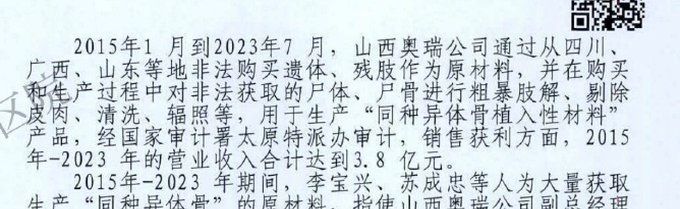 2015年1 月到2023年7 月，山西奥瑞公司通过从四川、
广西、山东等地非法购买遗体、残肢作为原材料，并在购买
和生产过程中对非法获取的尸体、尸骨进行粗暴肢解、剔除
皮肉、清洗、辐照等，用于生产“同种异体骨植入性材料”
产品，经国家审计署太原特派办审计，销售获利方面，2015
年-2023 年的营业收入合计达到3.8 亿元。
2015年-2023 年期间，李宝兴、苏成忠等人为大量获取
生产“同种异体骨”的原材料，指使山西奥瑞公司副总经理
区院